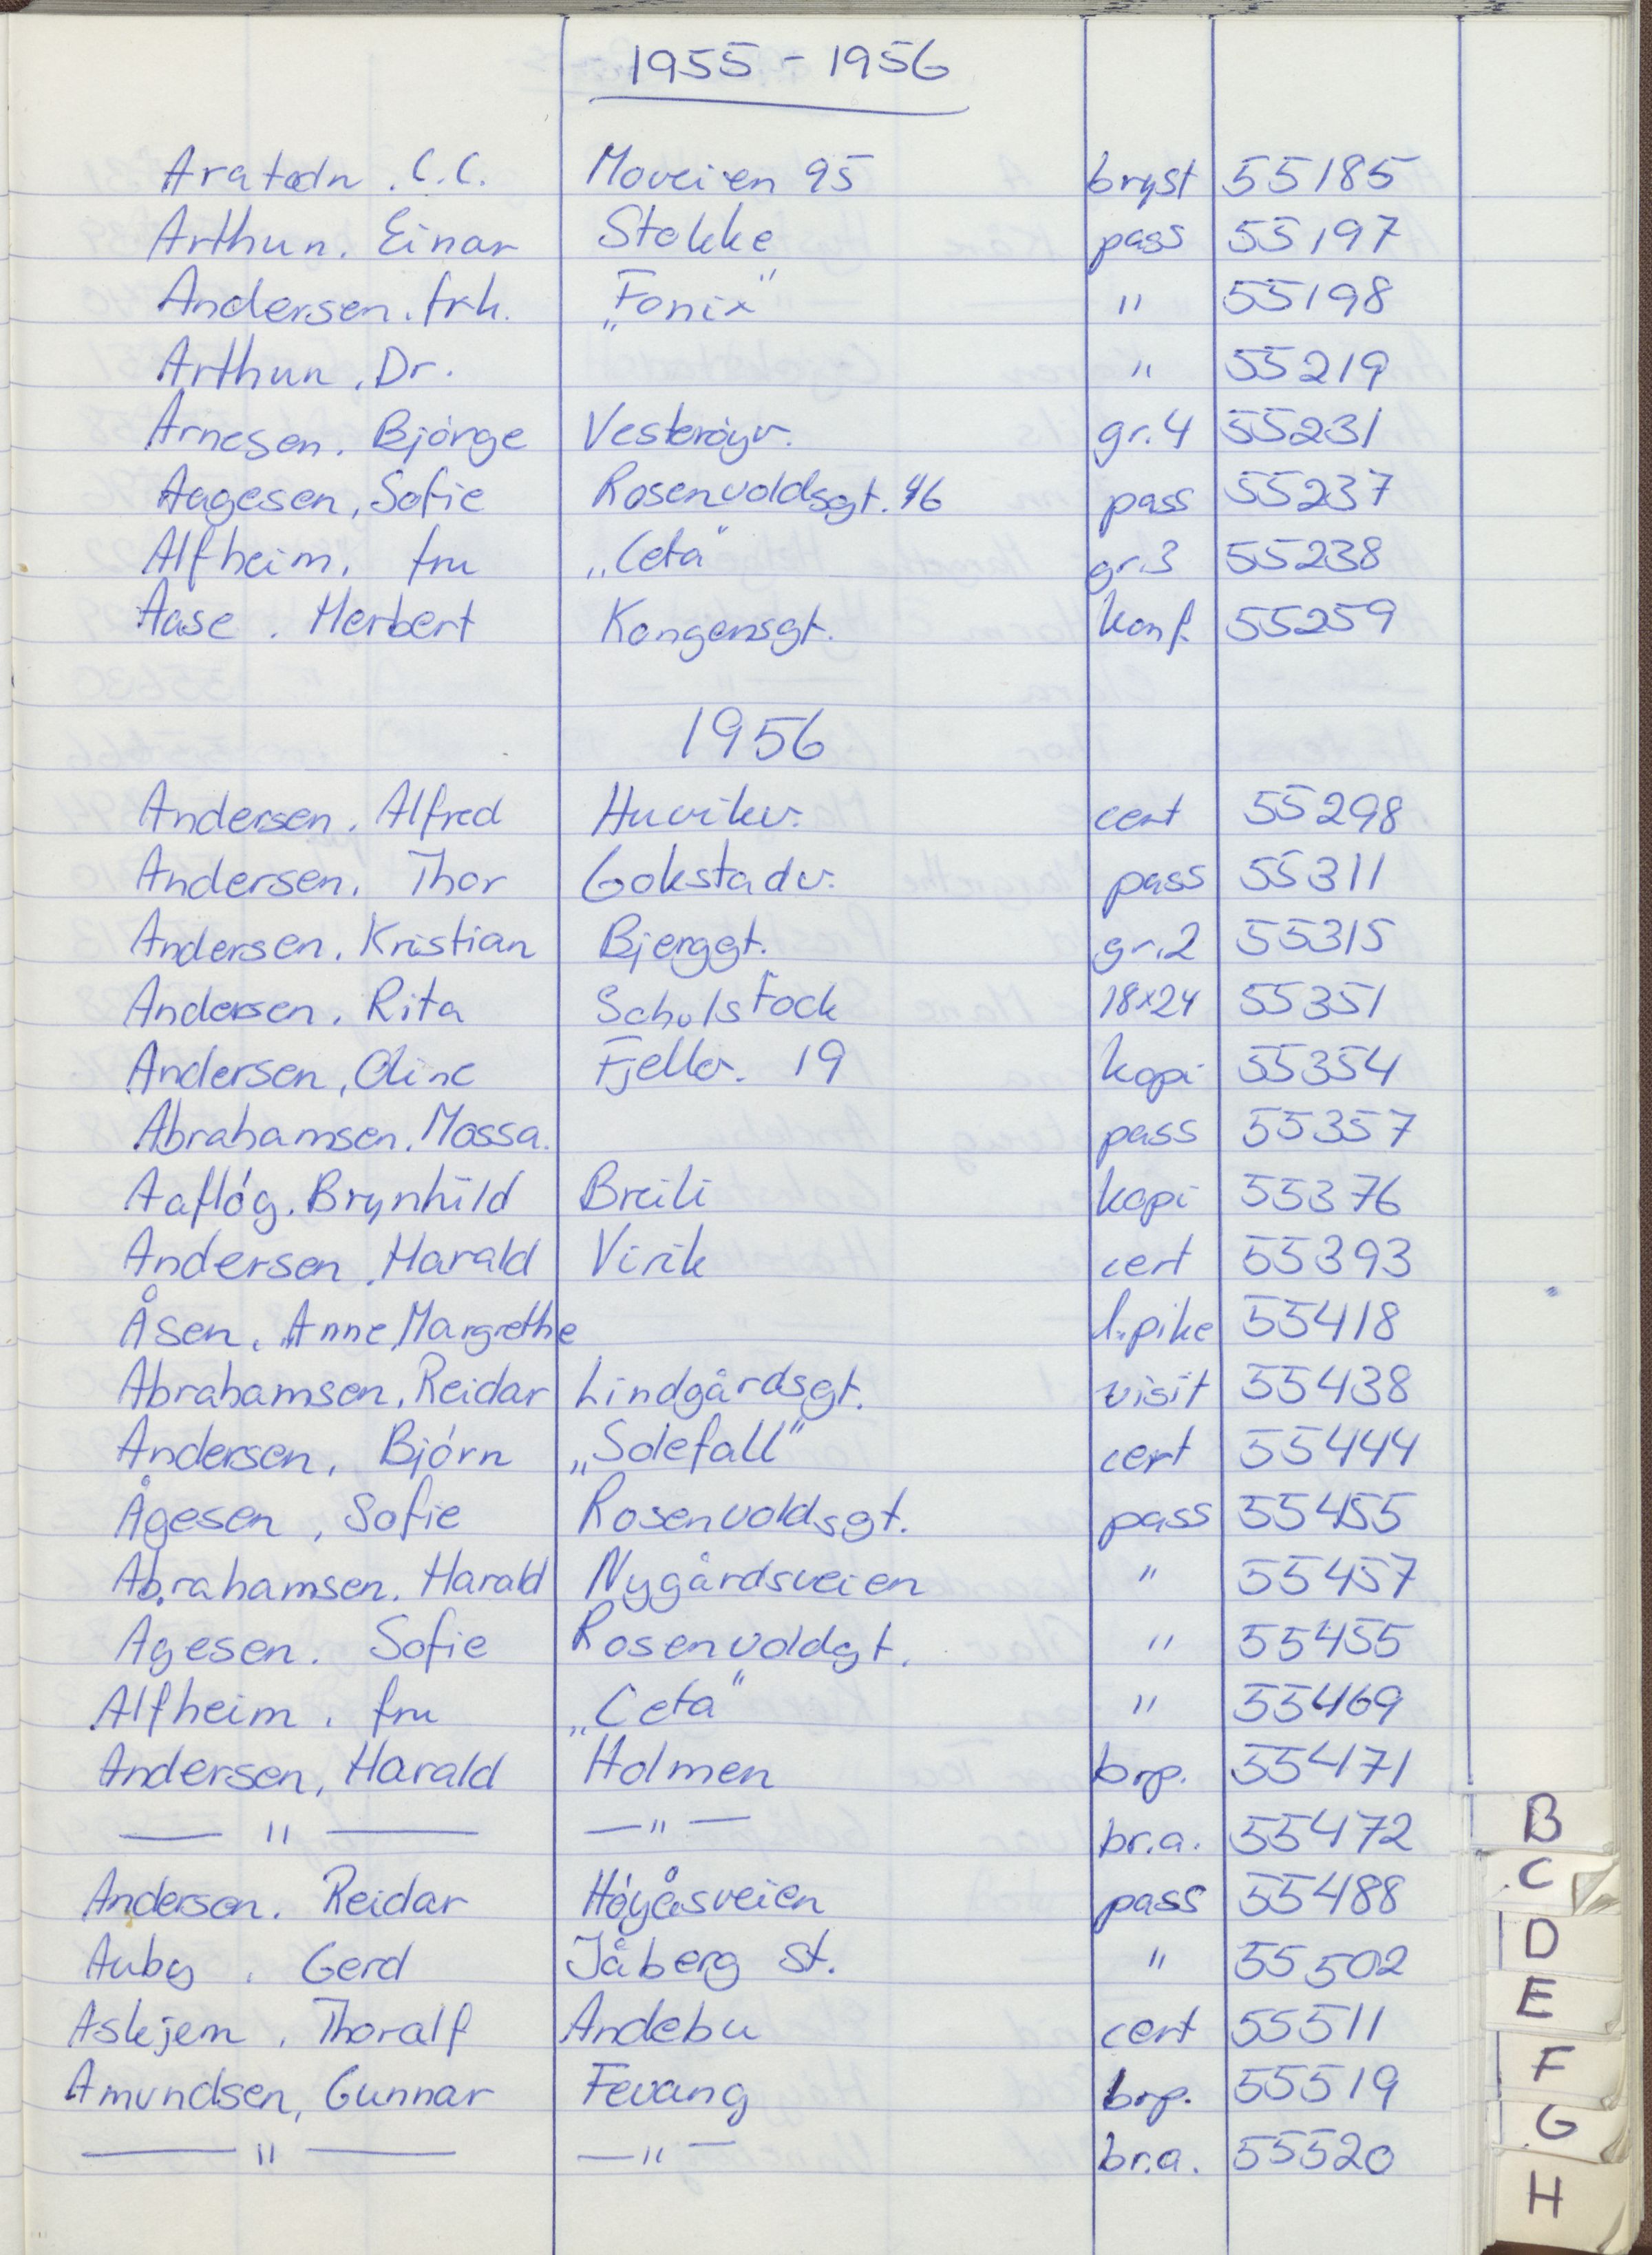 1955 - 1956
Aratodn. C.C. Moveien 95 bryst 55185
Arthun. Einar Stokke pass 55197
Andersen. frk. „Fonix" " 55198
Arthun, Dr. " 55219
Arnesen. Bjórge Vesteróyv. gr.4 55231
Aagesen, Sofie Rosenvoldsgt. 46 pass 55237
Alfheim. fru „Ceta" gr.3 55238
Aase. Herbert Kongensgt. konf. 55259
1956
Andersen. Alfred Huvikv. cert 55298
Andersen. Thor Gokstadv. pass 55311
Andersen. Kristian Bjerggt. gr.2 55315
Andersen. Rita Scholstock 18x24 55351
Andersen, Oline Fjellv. 19 kopi 55354
Abrahamsen. Mossa. pass 55357
Aaflóg. Brynhild Breili kopi 55376
Andersen. Harald Virik cert 55393
Åsen. Anne Margrethe l.pike 55418
Abrahamsen. Reidar Lindgårdsgt. visit 55438
Andersen, Bjórn „Solefall" cert 55444
Ågesen, Sofie Rosenvoldsgt. pass 55455
Abrahamsen. Harald Nygårdsveien " 55457
Agesen. Sofie Rosenvoldgt. " 55455
Alfheim. fru „Ceta" " 55469
Andersen, Harald Holmen brp. 55471
— " — — " — br.a. 55472
Andersen. Reidar Hóyåsveien pass 55488
Auby. Gerd Jåberg st. " 55502
Askjem. Thoralf Andebu cert 55511
Amundsen, Gunnar Fevang brp. 55519
— " — — " — br.a. 55520
B
C
D
E
F
G
H